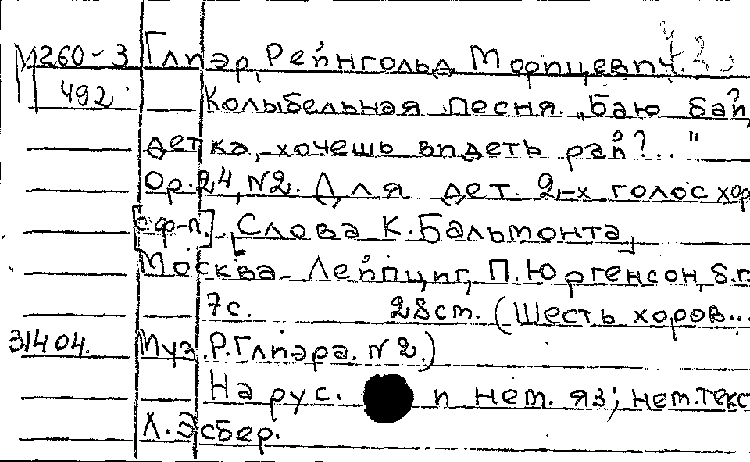 М260-3 Глиэр, Рейнгольд Морицевич.
492 Колыбельная песня „Баю бай,
детка,-хочешь видеть рай?.."
Op.24, N2. Для дет. 2-х голос хор
[с ф-п.], Слова К.Бальмонта,
Москва-Лейпциг, П.Юргенсон, б.г.
7с. 28ст. (Шесть хоров...
31404. Муз.Р.Глиэра. N2.)
На рус. и нем. яз; нем.текс
Л.Эсбер.